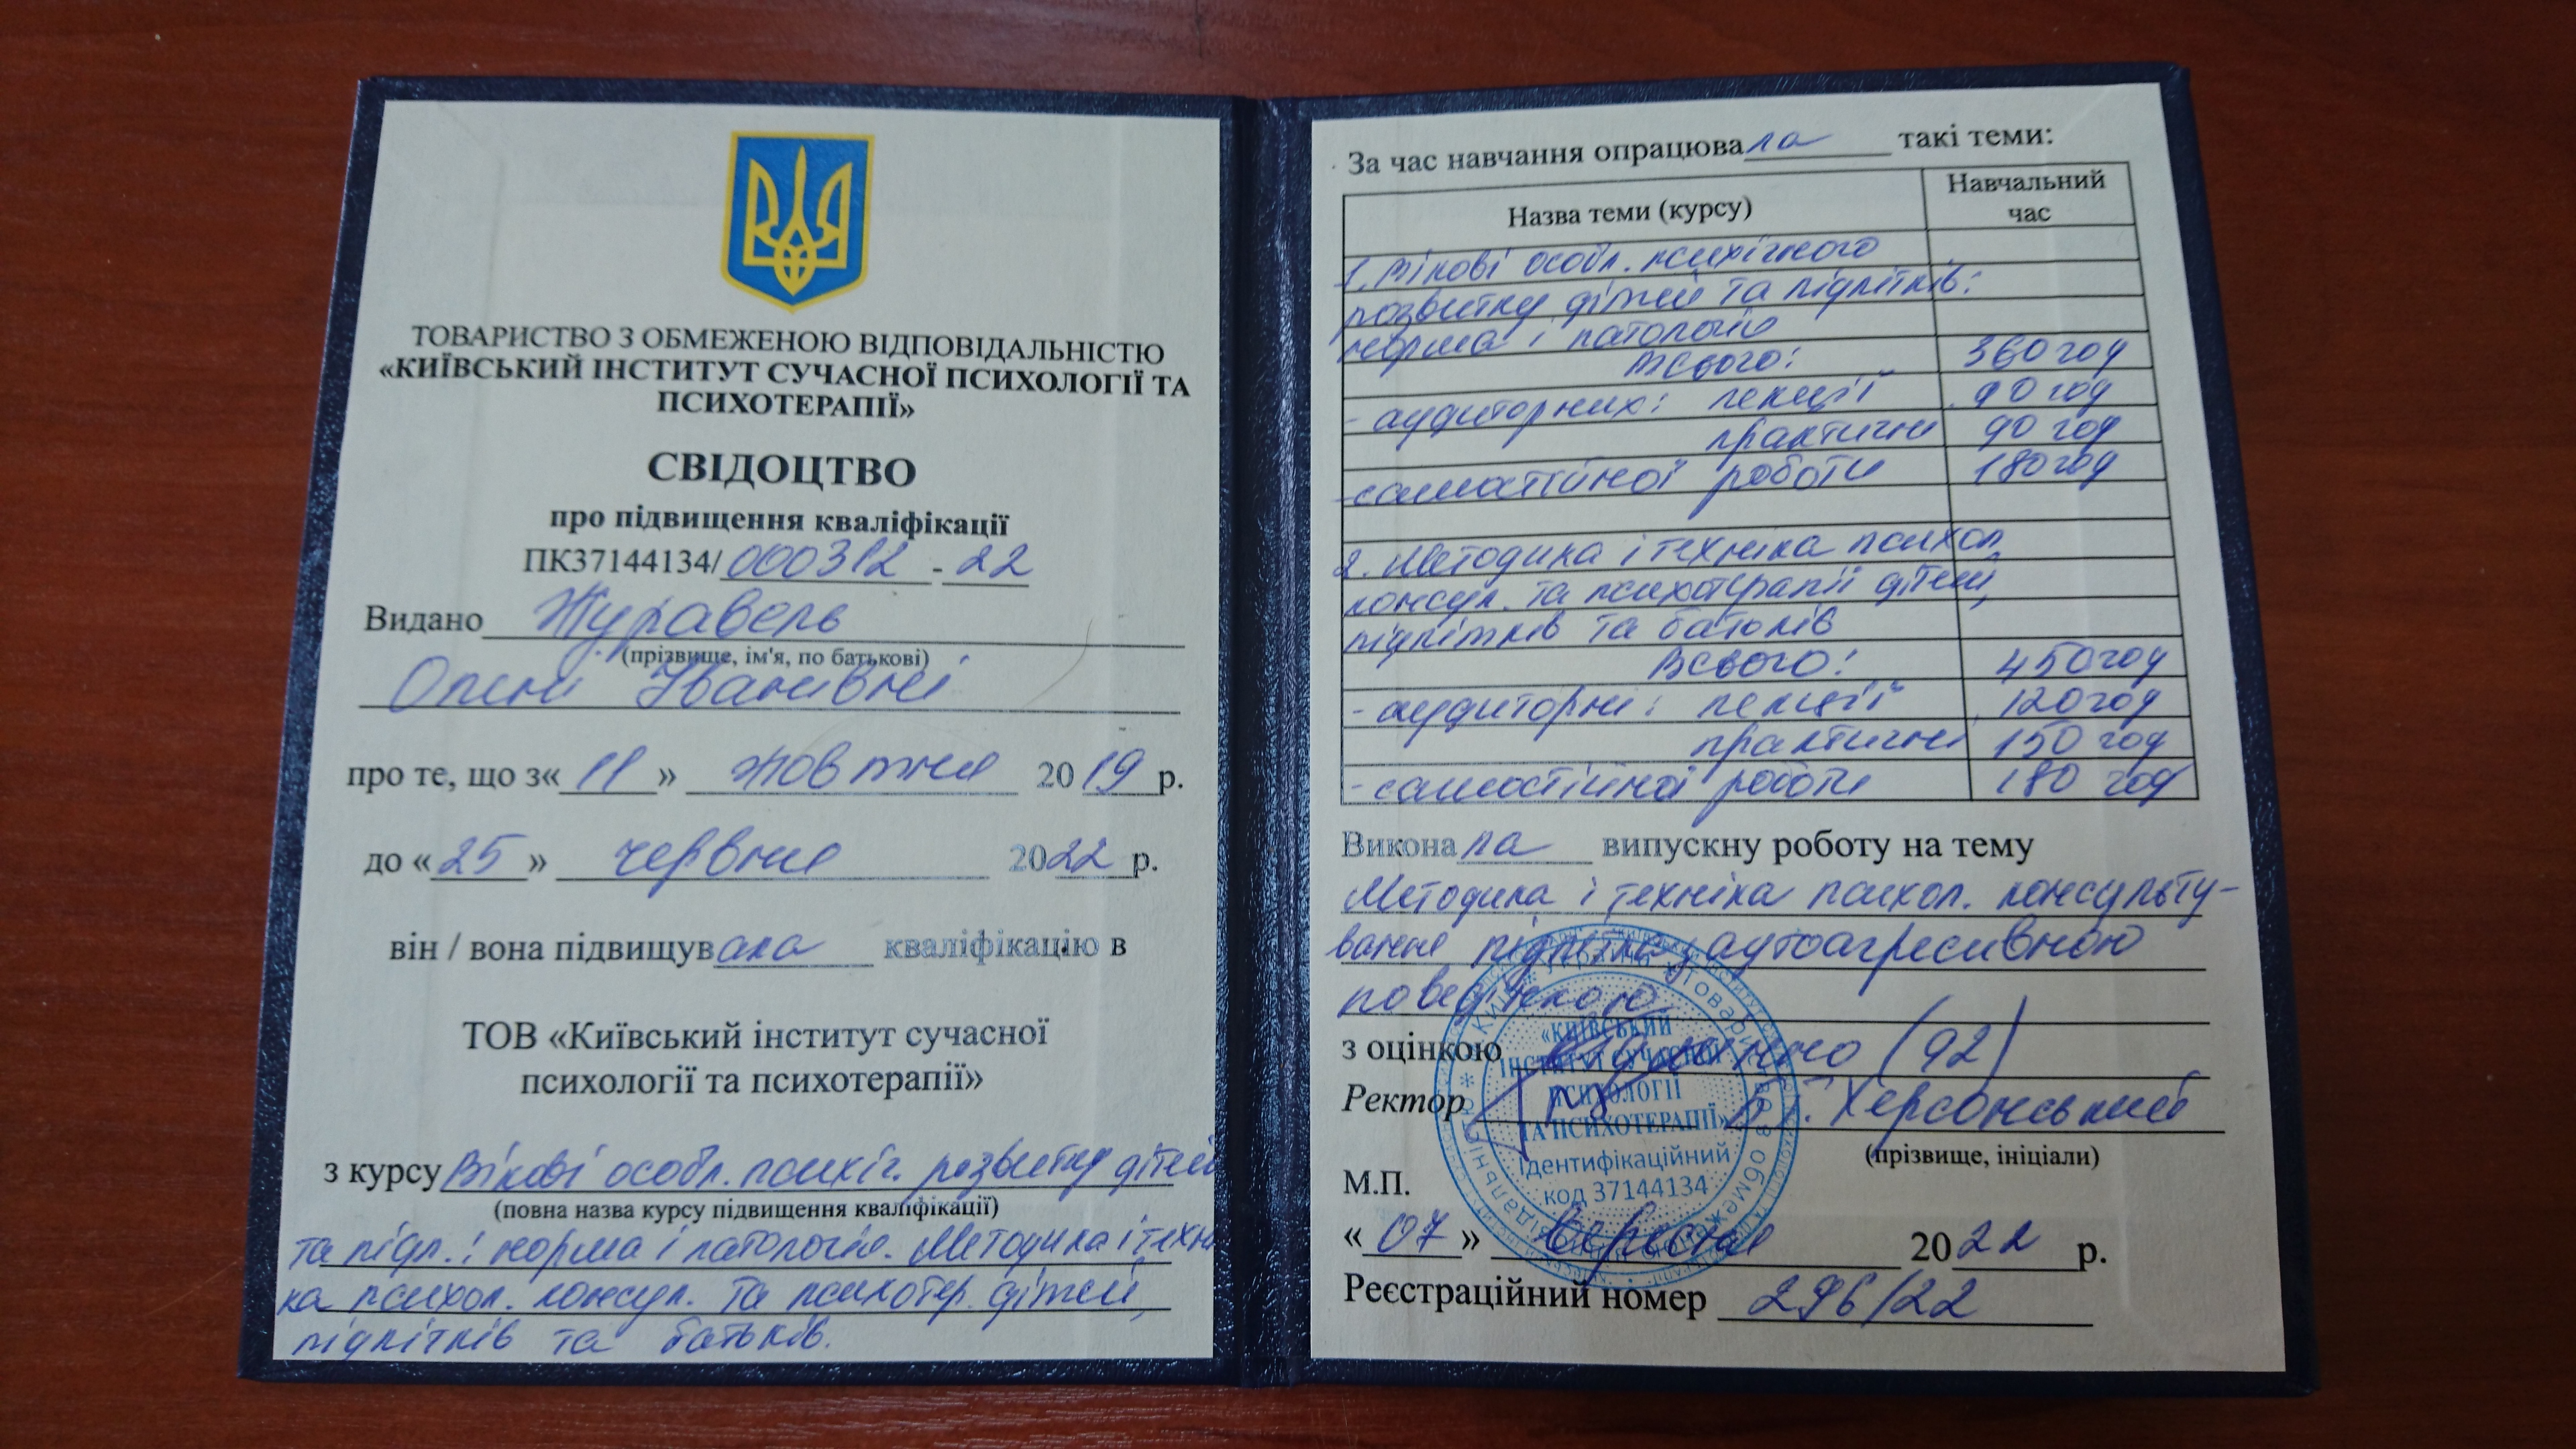 ТОВАРИСТВО З ОБМЕЖЕНОЮ ВІДПОВІДАЛЬНІСТЮ
«КИЇВСЬКИЙ ІНСТИТУТ СУЧАСНОЇ ПСИХОЛОГІЇ ТА
ПСИХОТЕРАПІЇ»
СВІДОЦТВО
про підвищення кваліфікації
ПК37144134/ 000312 - 22
Видано Журавель
(прізвище, ім'я, по батькові)
Олені Іванівні
про те, що з« 11 » жовтня 20 19 р.
до « 25 » червня 20 22 р.
він / вона підвищувала кваліфікацію в
ТОВ «Київський інститут сучасної
психології та психотерапії»
з курсу Вікові особл. психіч. розвитку дітей
(повна назва курсу підвищення кваліфікації)
та підл.: норма і патологія. Методика і техні
ка психол. консул. та психотер. дітей,
підлітків та батьків.
За час навчання опрацювала такі теми:
Назва теми (курсу) Навчальний
час
1. Вікові особл. психічного
розвитку дітей та підлітків:
норма і патологія
Всього: 360 год
- аудиторних: лекції 90 год
практичні 90 год
- самостійної роботи 180 год
2. Методика і техніка психол.
консул. та психотерапії дітей,
підлітків та батьків
Всього: 450 год
- аудиторні: лекції 120 год
практичні 150 год
- самостійної роботи 180 год
Виконала випускну роботу на тему
Методика і техніка психол. консульту-
вання підлітка з аутоагресивною
поведінкою
з оцінкою відмінно (92)
Ректор Херсонський
(прізвище, ініціали)
М.П.
« 07 » вересня 20 22 р.
Реєстраційний номер 296/22
«КИЇВСЬКИЙ
ІНСТИТУТ СУЧАСНОЇ
ПСИХОЛОГІЇ
ТА ПСИХОТЕРАПІЇ»
Ідентифікаційний
код 37144134